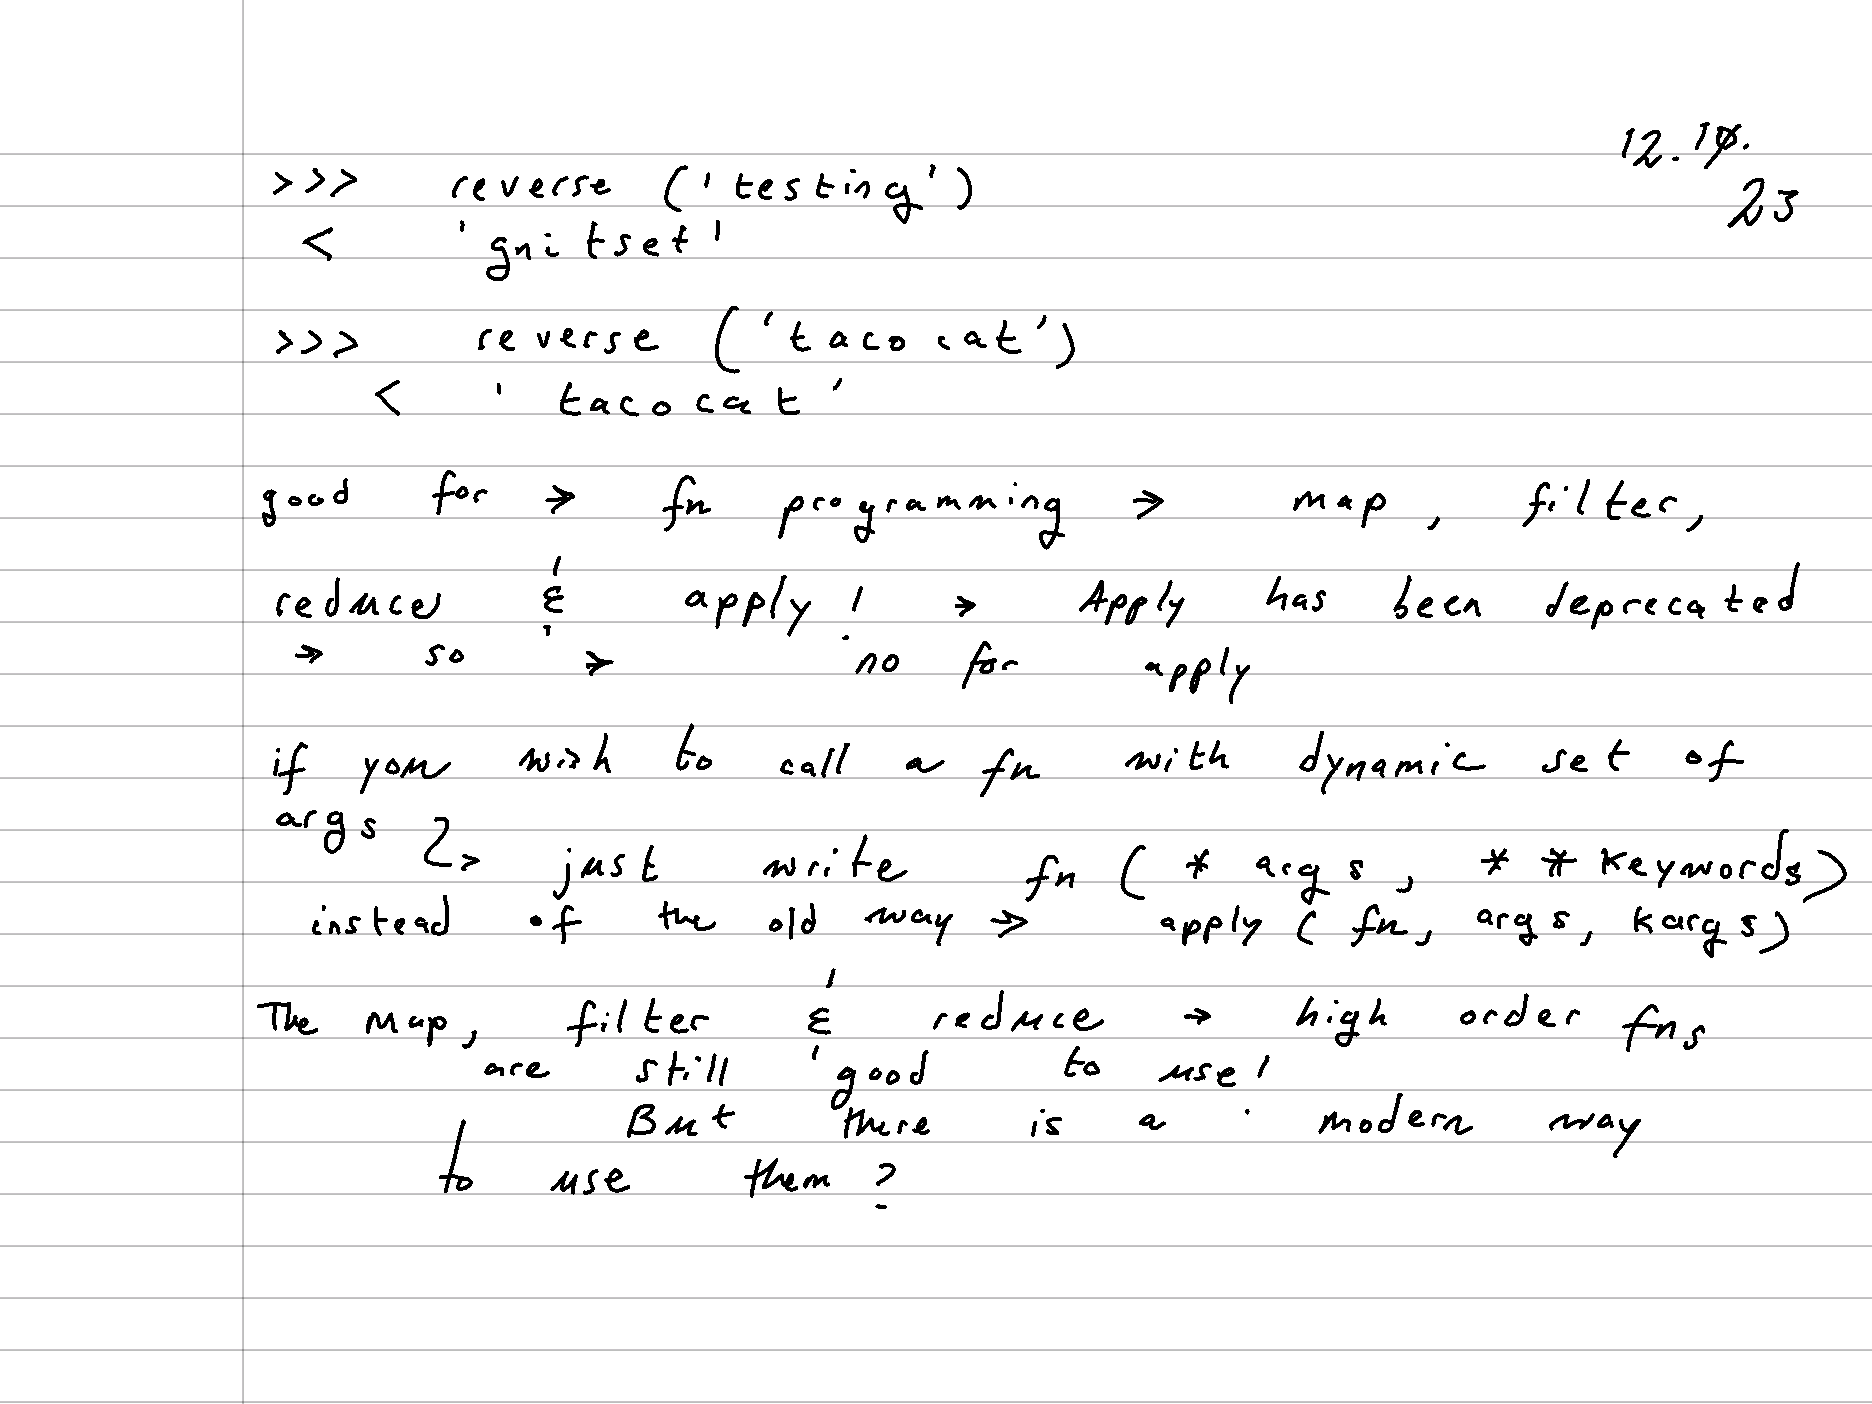 12.10.
23
>>> reverse ('testing')
< 'gnitset'
>>> reverse ('tacocat')
< 'tacocat'
good for → fn programming → map, filter,
reduce & apply! → Apply has been deprecated
→ so → no for apply
if you wish to call a fn with dynamic set of
args
just write fn (*args, **keywords)
instead of the old way → apply (fn, args, kargs)
The map, filter & reduce → high order fns
are still good to use!
But there is a modern way
to use them?